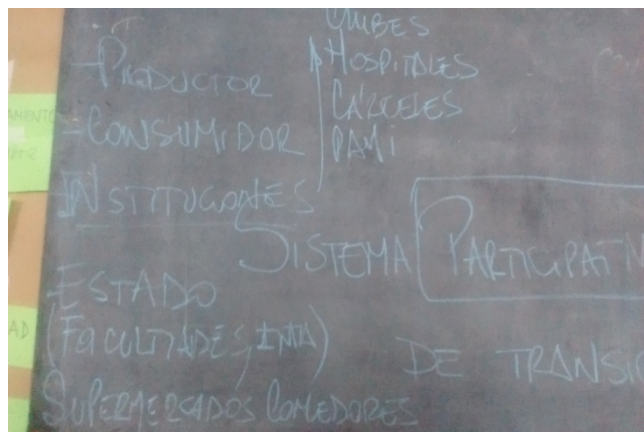 - PRODUCTOR
- CONSUMIDOR
INSTITUCIONES
CLUBES
HOSPITALES
CÁRCELES
PAMI
SISTEMA PARTICIPATIV
DE TRANSIC
ESTADO
(FACULTADES, INTA)
SUPERMERCADOS COMEDORES
AMENTO
AD